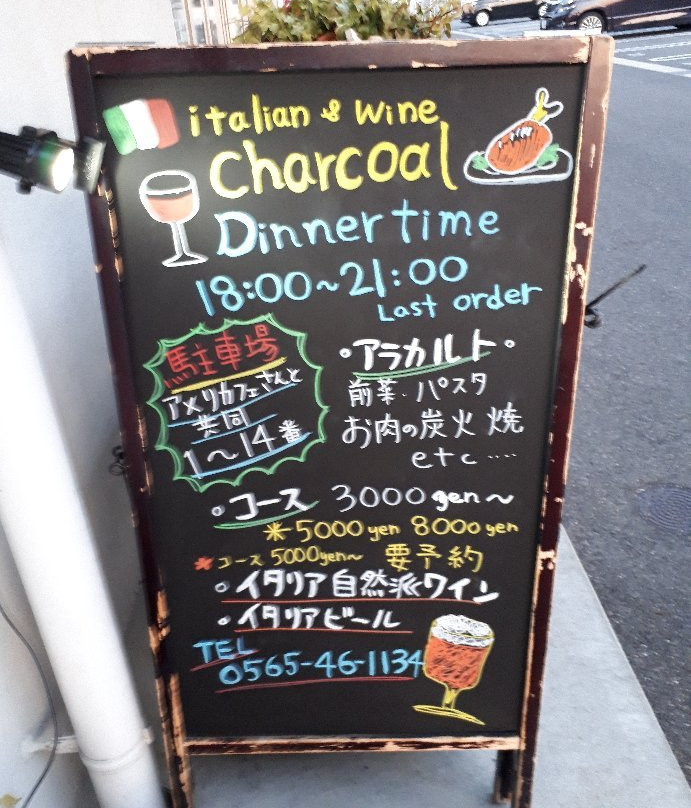 italian & wine
charcoal
Dinner time
18:00~21:00
Last order
駐車場
アメリカフェさんと
共同
1~14番
・アラカルト・
前菜・パスタ
お肉の炭火焼
etc....
・コース 3000yen~
※5000yen 8000yen
*コース 5000yen~ 要予約
・イタリア自然派ワイン
・イタリアビール
TEL
0565-46-1134